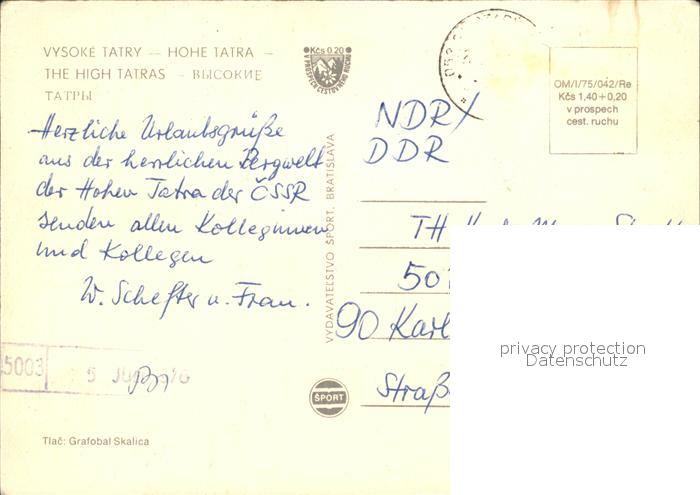 VYSOKÉ TATRY — HOHE TATRA —
THE HIGH TATRAS — ВЫСОКИЕ
ТАТРЫ
Kčs 0.20
V PROSPECH CESTOVNÉHO RUCHU
OM/I/75/042/Re
Kčs 1,40+0,20
v prospech
cest. ruchu
Herzliche Urlaubsgrüße
aus der herrlichen Bergwelt
der Hohen Tatra der ČSSR
senden allen Kolleginnen
und Kollegen
W. Schefter u. Frau.
NDR/
DDR
TH
501
90 Karl
Straß
VYDAVATEĽSTVO ŠPORT, BRATISLAVA
5003
5 JU
ŠPORT
Tlač: Grafobal Skalica
privacy protection
Datenschutz